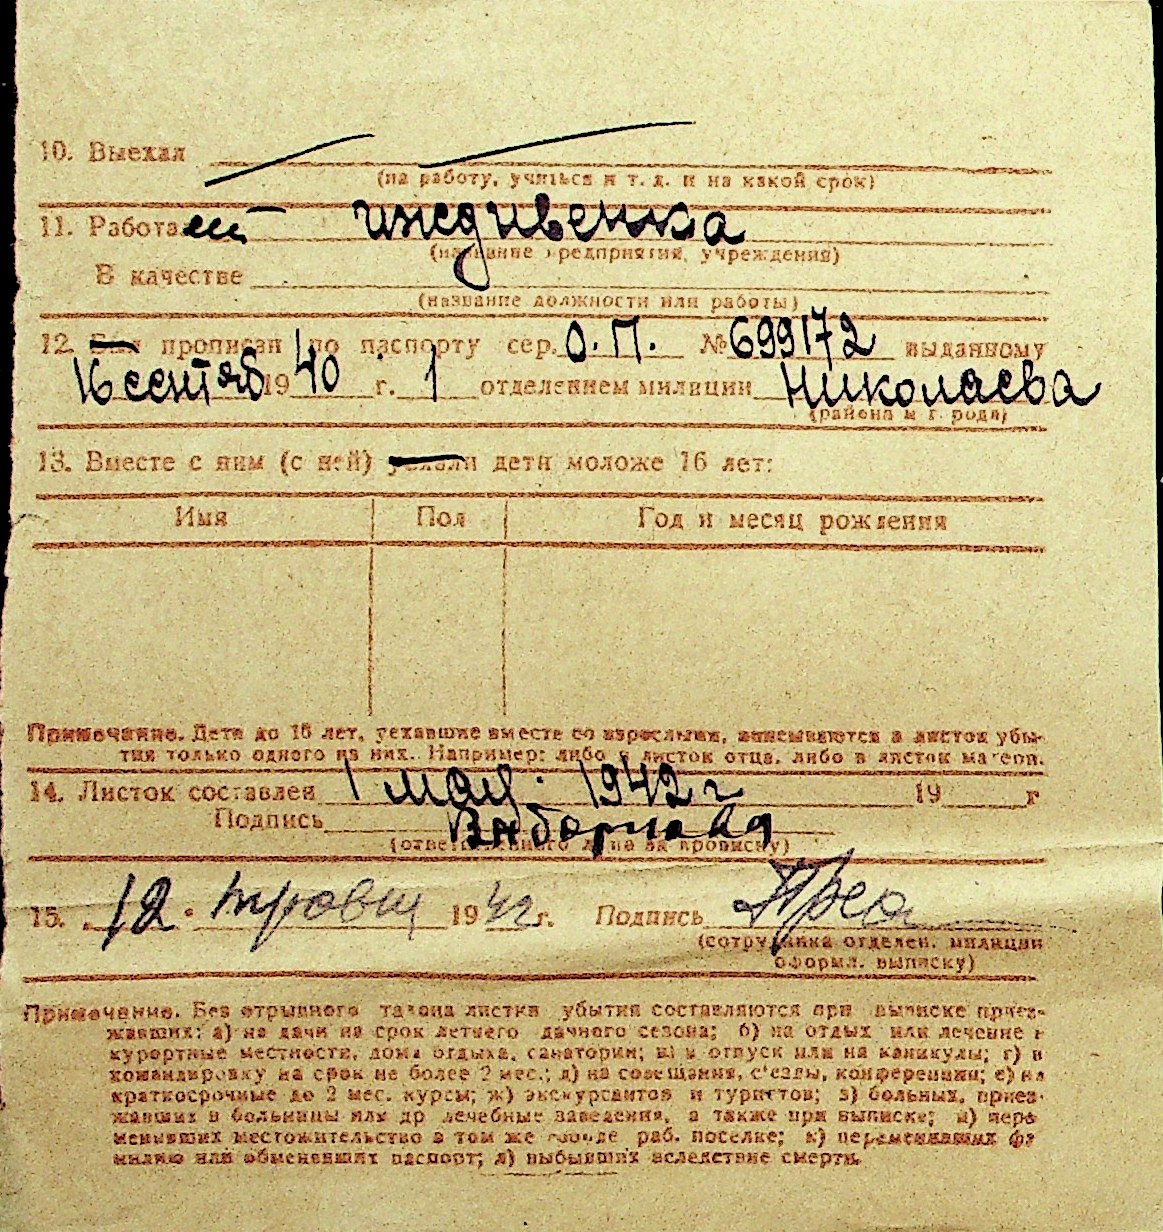 10. Выехал
(на работу, учиться и т. д. и на какой срок)
11. Работает иждивенка
(название предприятия, учреждения)
В качестве
(название должности или работы)
12. прописан по паспорту сер. О.П. № 699172 выданному
16 сентяб 1940 г. 1 отделением милиции Николаева
(района и города)
13. Вместе с ним (с ней) уехали дети моложе 16 лет:
Имя Пол Год и месяц рождения
Примечание. Дети до 16 лет, уехавшие вместе со взрослыми, вписываются в листок убы-
тия только одного из них. Например: либо в листок отца, либо в листок матери.
14. Листок составлен 1 мая 1942 г 19 г
Подпись
(ответственного лица за прописку)
15. 12 травня 1942 г. Подпись
(сотрудника отделен. милиции
оформл. выписку)
Примечание. Без отрывного талона листки убытия составляются при выписке приез-
жавших: а) на дачи на срок летнего дачного сезона; б) на отдых или лечение в
курортные местности, дома отдыха, санатории; в) в отпуск или на каникулы; г) в
командировку на срок не более 2 мес.; д) на совещания, с'езды, конференции; е) на
краткосрочные до 2 мес. курсы; ж) экскурсантов и туристов; з) больных, приез-
жавших в больницы или др лечебные заведения, а также при выписке; и) пере
менивших местожительство в том же городе раб. поселке; к) переменивших фа
милию или обменявших паспорт; л) выбывших вследствие смерти.